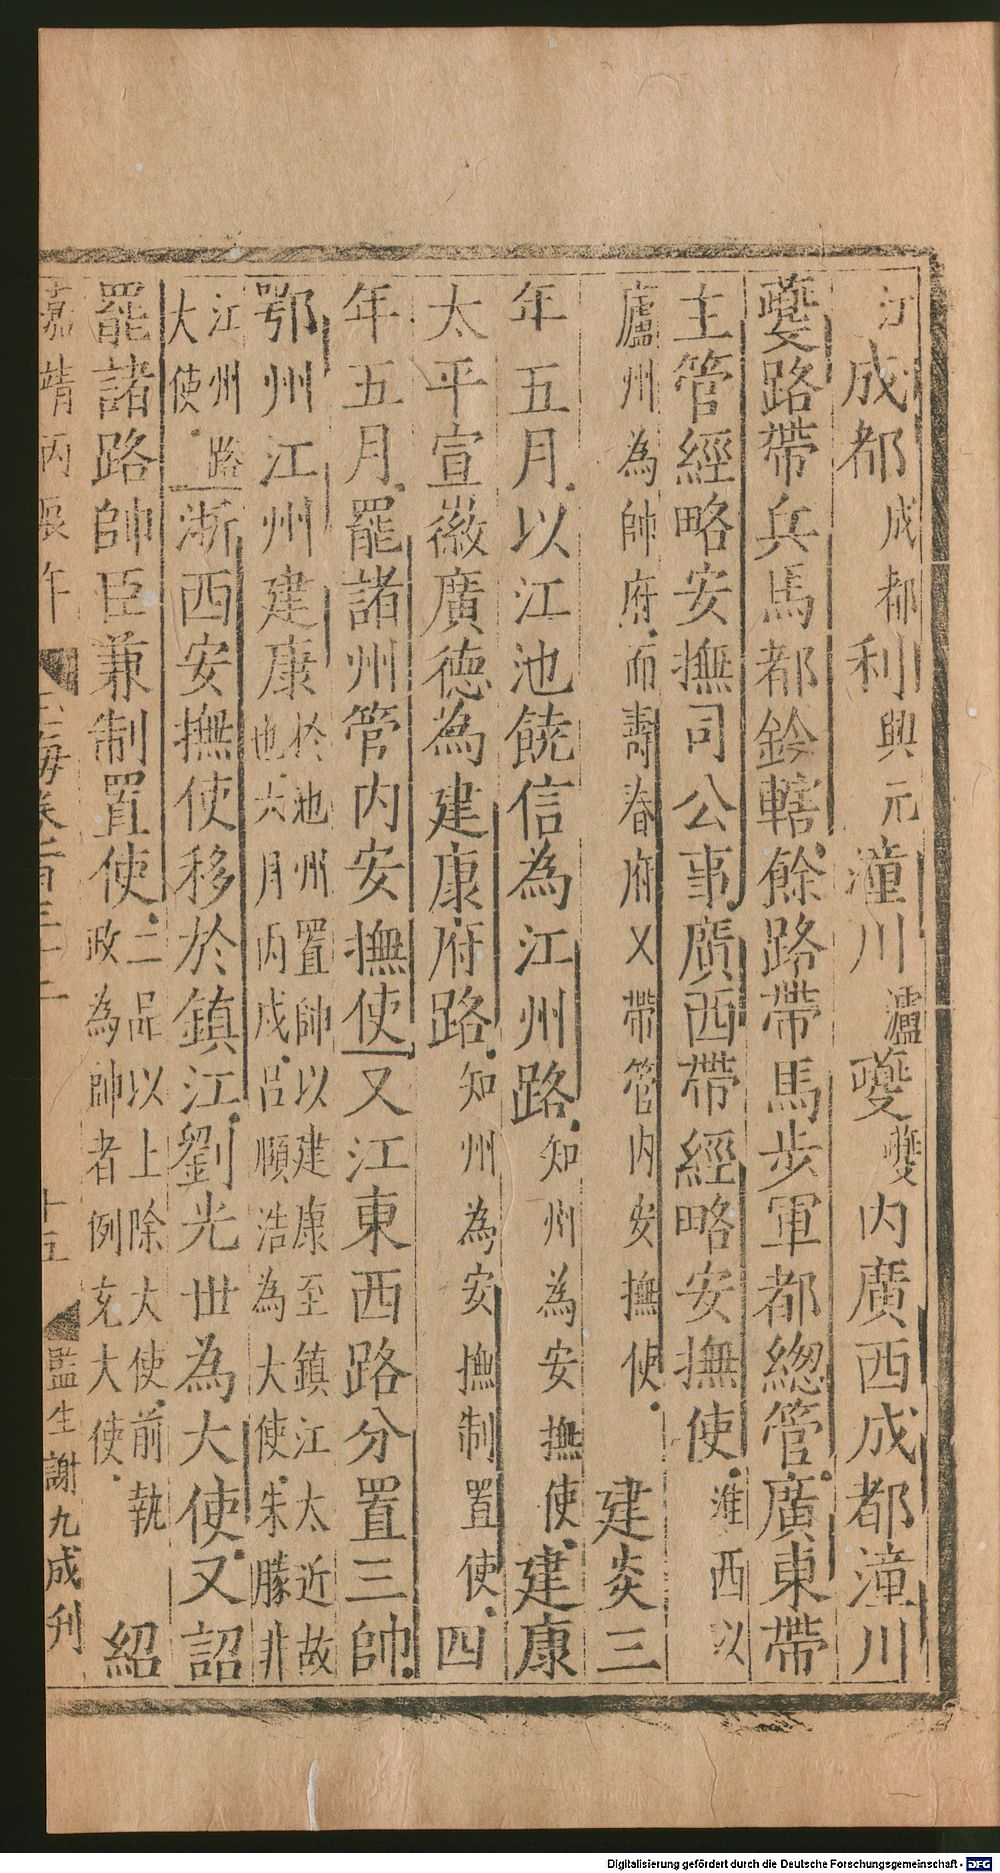 江成都成都利興元潼川瀘夔夔內廣西成都潼川
夔路帶兵馬都鈐轄餘路帶馬步軍都緫管廣東帶
主管經略安撫司公事廣西帶經略安撫使淮西以
廬州為帥府而壽春府又帶管内安撫使建炎三
年五月以江池饒信為江州路知州為安撫使建康
太平宣徽廣德為建康府路知州為安撫制置使四
年五月罷諸州管内安撫使又江東西路分置三帥
鄂州江州建康於池州置帥以建康至鎮江太近故
也六月丙戌吕順浩為大使朱勝非
江州路
大使浙西安撫使移於鎮江劉光世為大使又詔
罷諸路帥臣兼制置使二品以上除大使前執
政為帥者例充大使紹
嘉靖丙辰年 玉海卷一百三十二 十五 監生謝九成刋
Digitalisierung gefördert durch die Deutsche Forschungsgemeinschaft - DFG